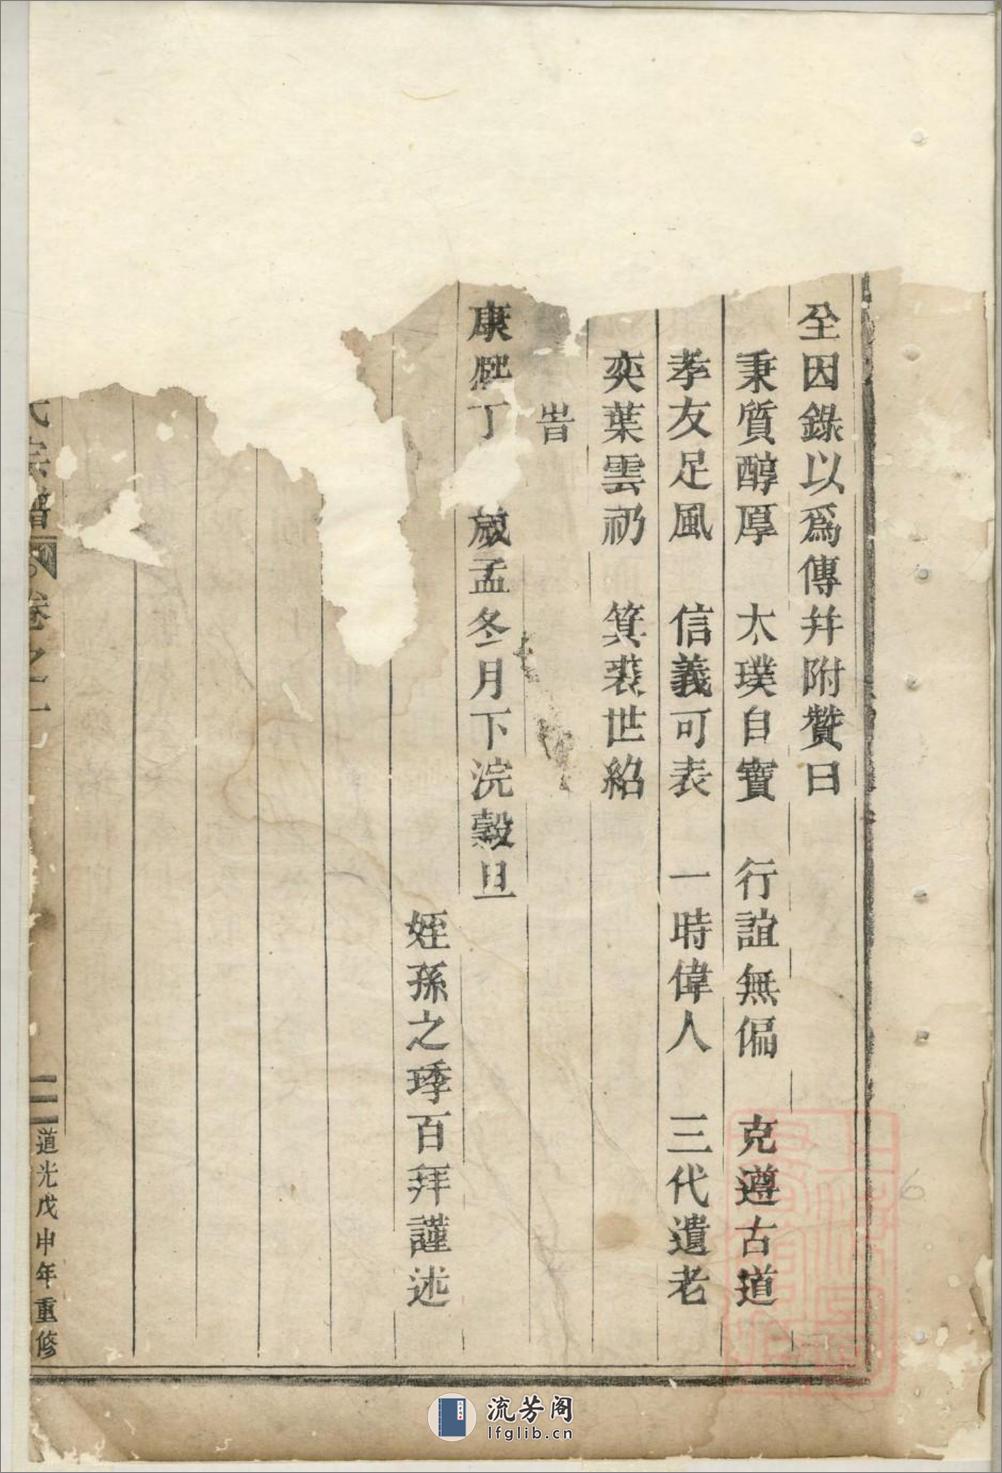 至因錄以爲傳幷附贊曰
秉質醇厚 太璞自寶 行誼無偏 克遵古道
孝友足風 信義可表 一時偉人 三代遺老
奕葉雲礽 箕裘世紹
旹
康熙丁 歲孟冬月下浣穀旦
姪孫之琇百拜謹述
氏宗譜 卷之一
道光戊申年重修
流芳阁
lfglib.cn